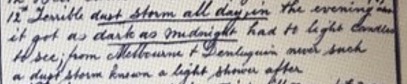 12th Terrible dust storm all day, in the evening
it got as dark as midnight had to light candles
to see; from Melbourne & Deniliquin never such
a dust storm known a light shower after